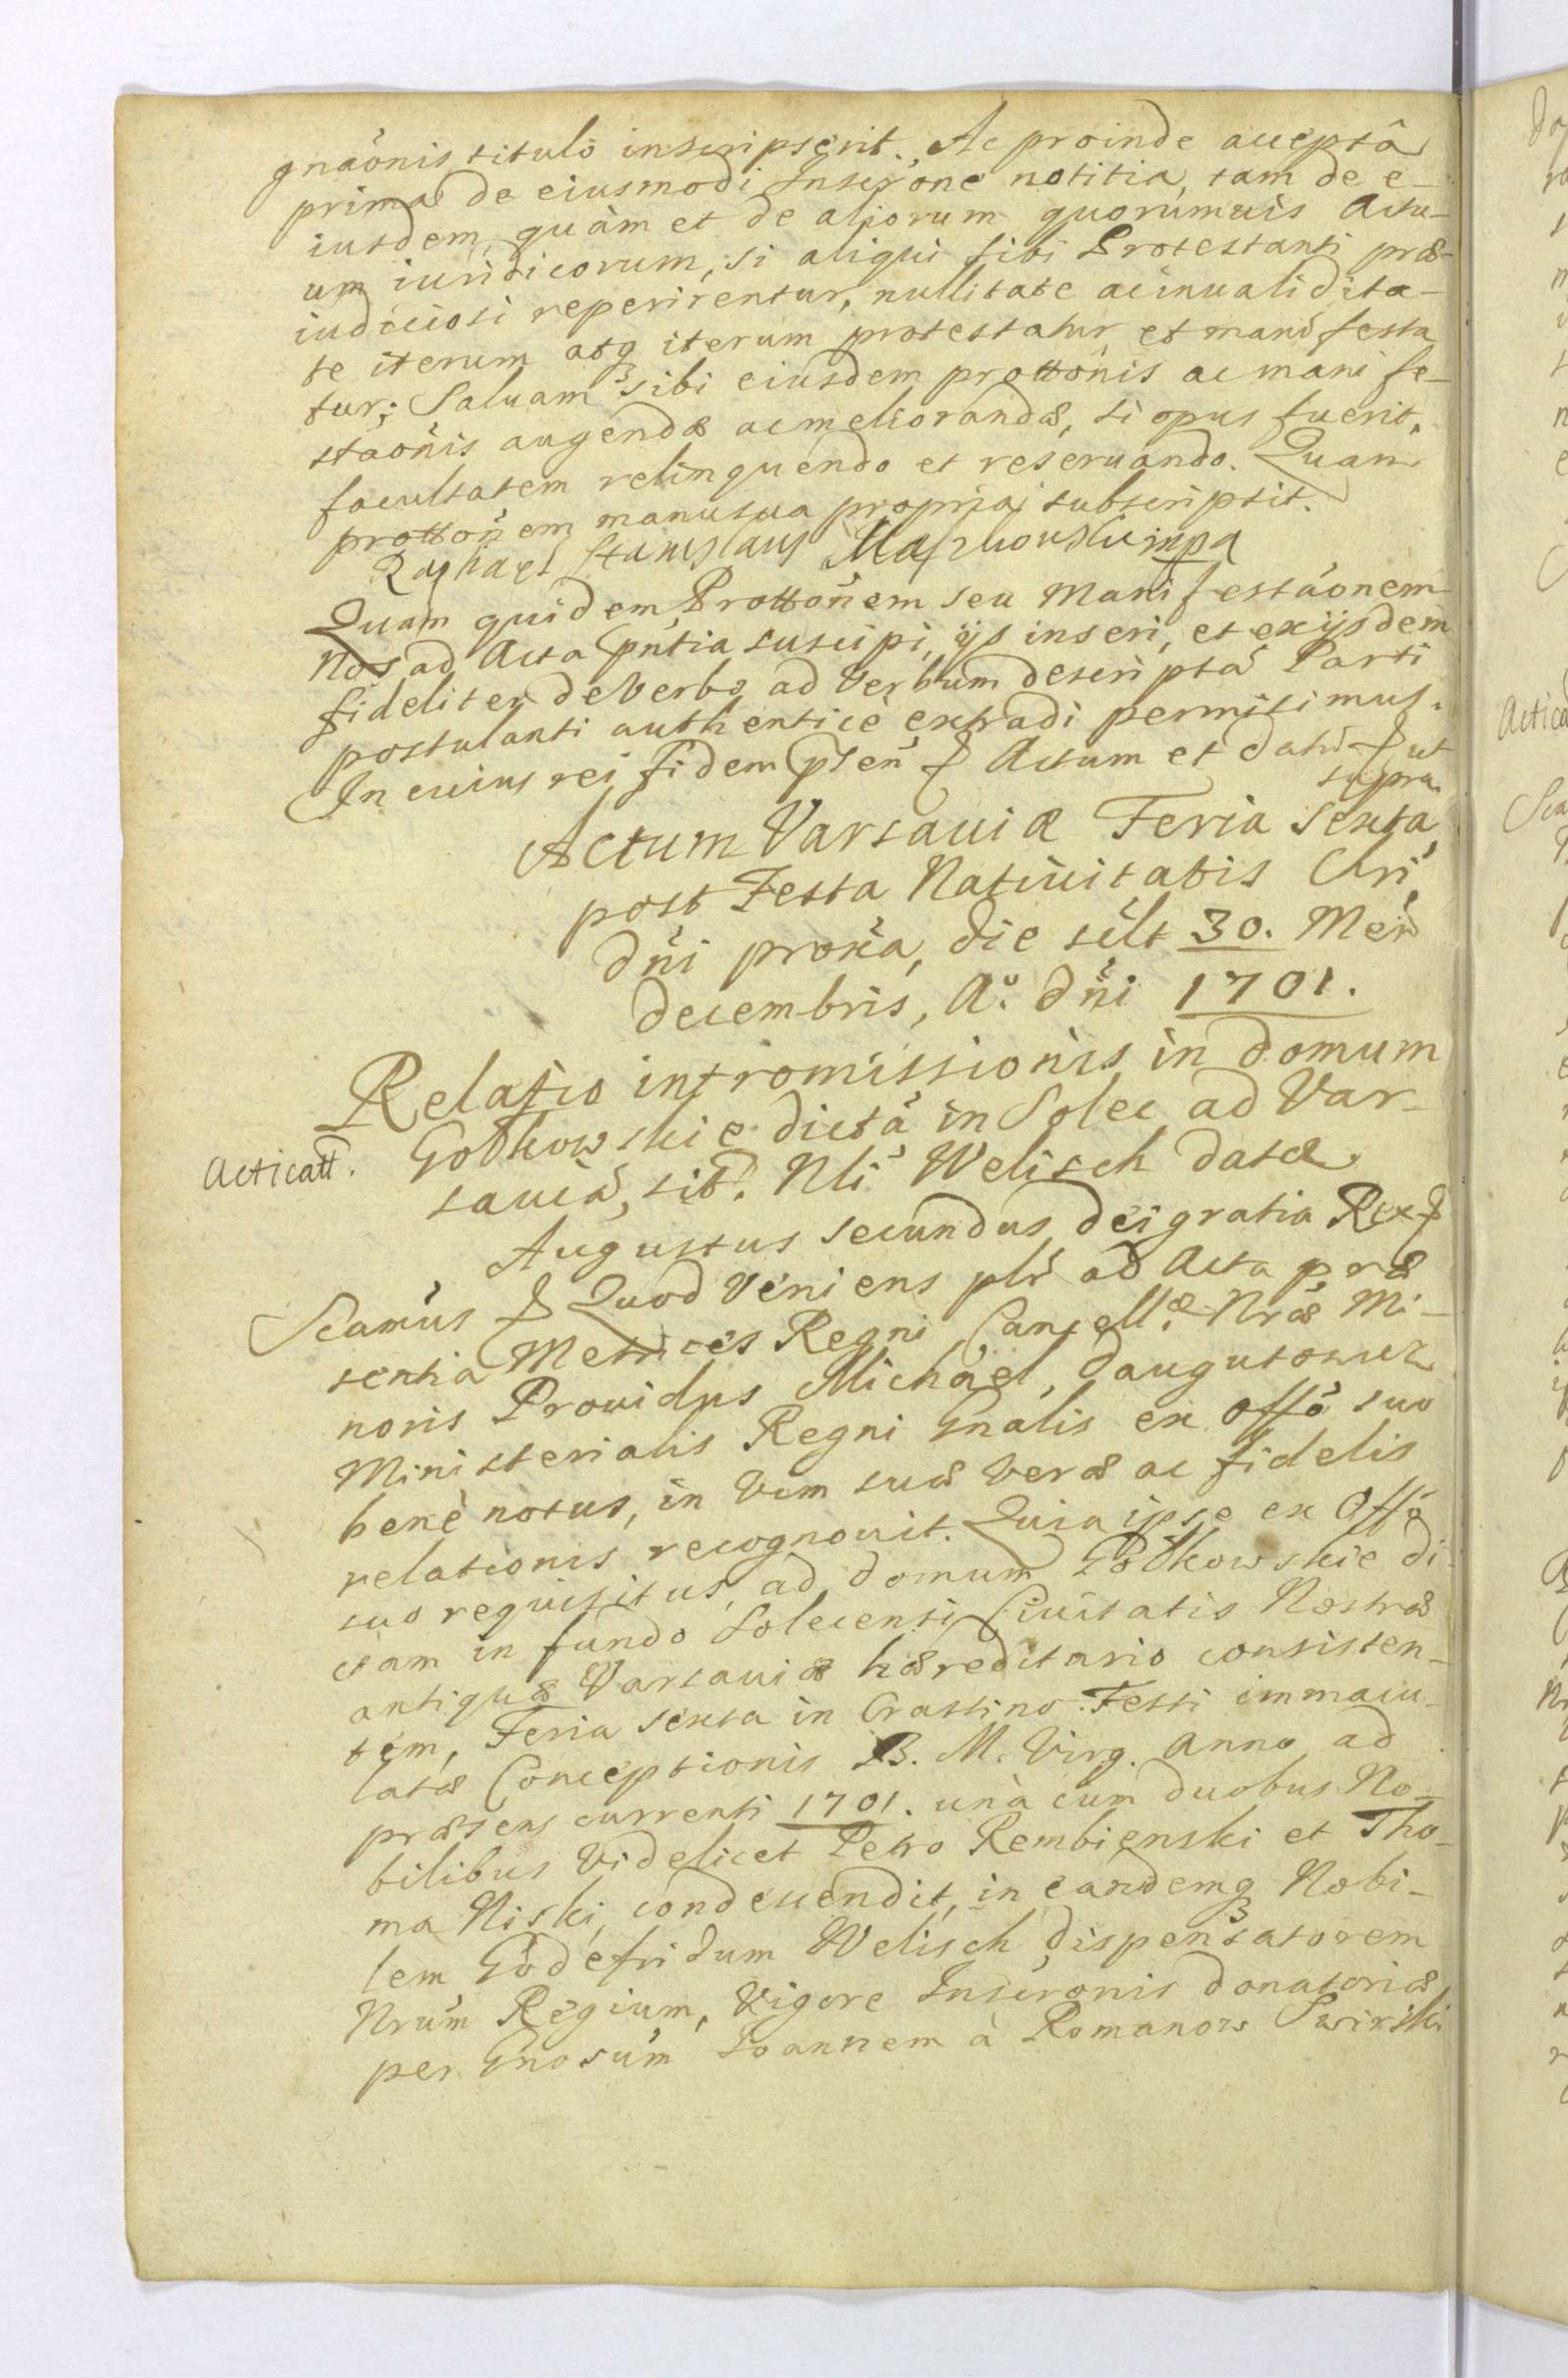 gnãonis titulo inscripserit. Ac proinde acceptâ
prima de eiusmodi Inscr̃one notitia, tam de e-
iusdem, quàm et de aliorum quorumuis Actu-
um iuridicorum, si aliqui sibi Protestanti præ-
iudiciosi reperirentur, nullitate ac inualidita-
te iterum atq₃ iterum protestatur et manifesta
tur; Saluam sibi eiusdem prottõnis ac manife-
stãonis augendæ ac meliorandæ, si opus fuerit,
facultatem relinquendo et reseruando. Quam
prottoñem manu sua propria subscripsit.
Raphael Stanislaus mpa
Quam quidem Prottoñem seu Manifestãonem
Nos ad Acta pñtia suscipi, ijs inseri, et ex ijsdem
fideliter de Verbo ad Verbum descriptã Parti
postulanti authenticè extradi permisimus.
In cuius rei fidem pñsen̄ & Actum et datũ & ut
supra.
Actum Varsauiæ Feria sexta
post Festa Natiuitatis Chri
dñi proxĩa, die scilt 30. Men̄
decembris, A.º dñi 1701.
Relatio intromissionis in domum
Godkowskie dictã in Solec ad Var-
Acticatt.
sauiã, sit. Nli Welisch datæ
Augustus secundus dei gratia Rex &
Scamus & Quod Veniens plr ad Acta præ
sentia Metrices Regni Cancell.æ Nræ Mi-
noris Prouidus Michael daugutowicz
Ministerialis Regni Gñalis ex offõ suo
benè notus, in Vim suæ Veræ ac fidelis
relationis recognouit. Quia ipse ex Offõ
suo requisitus, ad domum Godkowskie di-
ctam in fundo Solecensi Ciuitatis Nostræ
antiquæ Varsauiæ hæreditario consisten-
tem, Feria sexta in Crastino Festi immacu-
latæ Conceptionis B. M. Virg. Anno ad
præsens currenti 1701. unà cum duobus No-
bilibus Videlicet Petro Rembienski et Tho-
ma Niski, condescendit, in eandemq₃ Nobi-
lem Godefridum Welisch dispensatorem
Nrum Regium, Vigore Inscr̃onis donatoriæ
per Gñosum Ioannem à Romanow Swirski